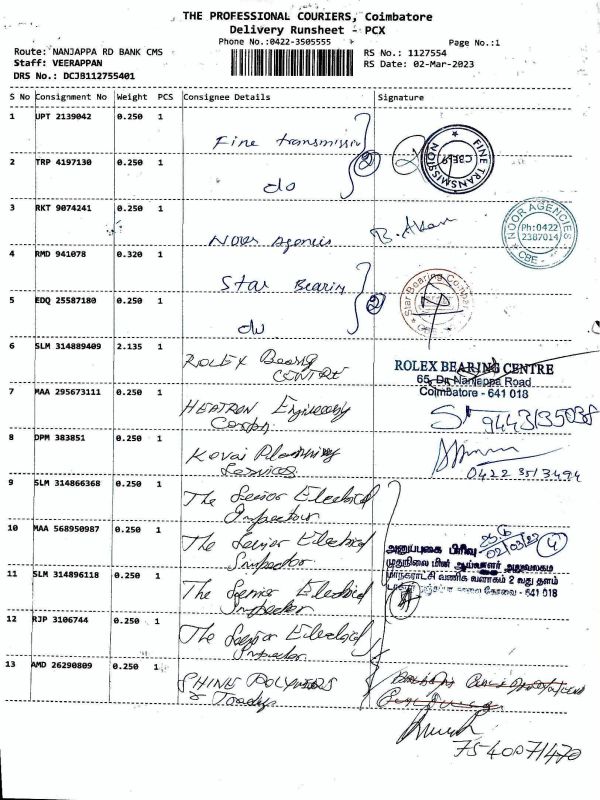 THE PROFESSIONAL COURIERS, Coimbatore
Delivery Runsheet - PCX
Phone No.:0422-3505555
Page No.:1
Route: NANJAPPA RD BANK CMS
Staff: VEERAPPAN
DRS No.: DCJB112755401
RS No.: 1127554
RS Date: 02-Mar-2023
S No Consignment No Weight PCS Consignee Details Signature
1 UPT 2139042 0.250 1
Fine transmission
2
FINE TRANSMISSION
CBE-9
2 TRP 4197130 0.250 1
do
3 RKT 9074241 0.250 1
Noor Agencies
NOOR AGENCIES
Ph:0422
2387014
CBE
4 RMD 941078 0.320 1
Star Bearing
2
Star Bearing Co
CBE
5 EDQ 25587180 0.250 1
do
6 SLM 314889409 2.135 1
ROLEX Bearing
CENTRE
ROLEX BEARING CENTRE
65, Dr. Nanjappa Road
Coimbatore - 641 018
7 MAA 295673111 0.250 1
HEATRON Engineering
9443135038
8 DPM 383851 0.250 1
Kovai Planning
Services
0422 3513494
9 SLM 314866368 0.250 1
The Senior Electrical
Inspector
10 MAA 568950987 0.250 1
The Senior Electrical
Inspector
02/03/23
4
அனுப்புகை பிரிவு
முதுநிலை மின் ஆய்வாளர் அலுவலகம்
மாநகராட்சி வணிக வளாகம் 2 வது தளம்
கோவை - 641 018
11 SLM 314896118 0.250 1
The Senior Electrical
Inspector
12 RJP 3106744 0.250 1
The Senior Electrical
Inspector
13 AMD 26290809 0.250 1
SHINE POLYMERS
7540071470